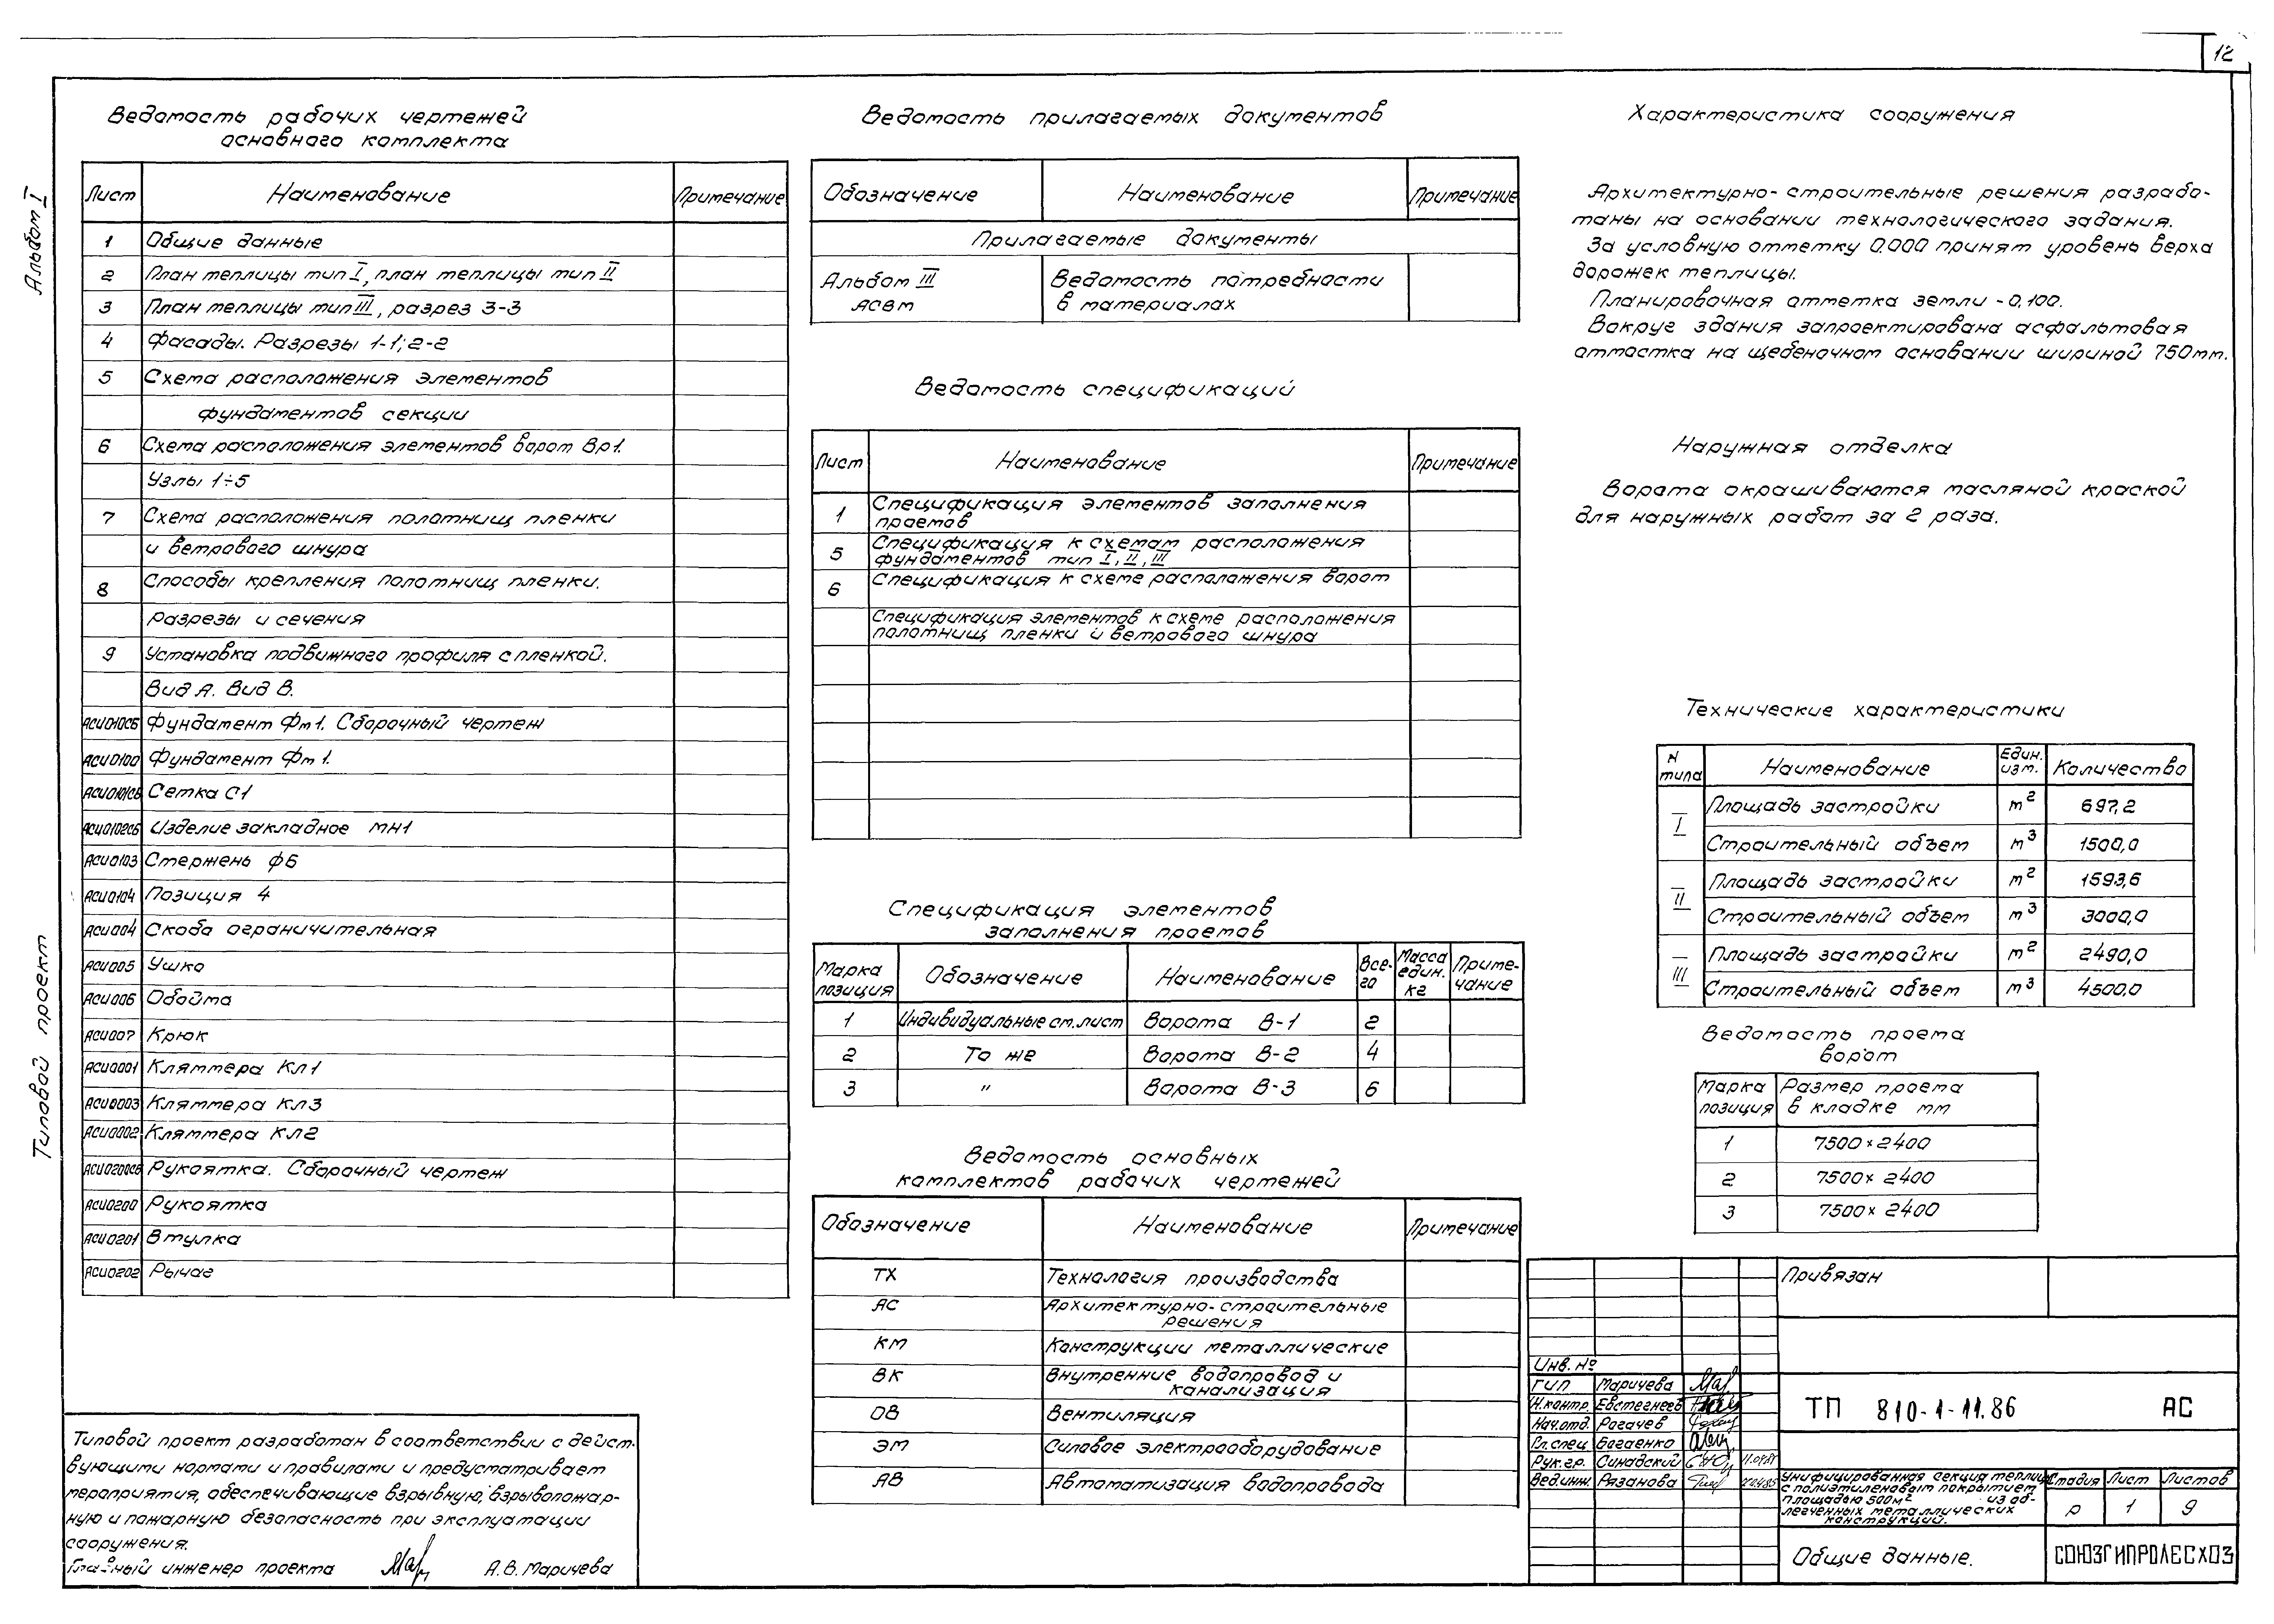 12
Альбом I
Типовой проект
Ведомость рабочих чертежей
основного комплекта
Лист Наименование Примечание
1 Общие данные
2 План теплицы тип I, план теплицы тип II
3 План теплицы тип III, разрез 3-3
4 Фасады. Разрезы 1-1; 2-2
5 Схема расположения элементов
фундаментов секции
6 Схема расположения элементов ворот Вр1.
Узлы 1÷5
7 Схема расположения полотнищ пленки
и ветрового шнура
8 Способы крепления полотнищ пленки.
Разрезы и сечения
9 Установка подвижного профиля с пленкой.
Вид А. Вид В.
АСИ0100СБ Фундамент Фм1. Сборочный чертеж
АСИ0100 Фундамент Фм1.
АСИ0101СБ Сетка С1
АСИ0102СБ Изделие закладное МН1
АСИ0103 Стержень ф6
АСИ0104 Позиция 4
АСИ004 Скоба ограничительная
АСИ005 Ушко
АСИ006 Обойма
АСИ007 Крюк
АСИ0001 Кляммера Кл1
АСИ0003 Кляммера Кл3
АСИ0002 Кляммера Кл2
АСИ0200СБ Рукоятка. Сборочный чертеж
АСИ0200 Рукоятка
АСИ0201 Втулка
АСИ0202 Рычаг
Типовой проект разработан в соответствии с дейст.
вующими нормами и правилами и предусматривает
мероприятия, обеспечивающие взрывную, взрывопожар-
ную и пожарную безопасность при эксплуатации
сооружения.
Главный инженер проекта А.В. Маричева
Ведомость прилагаемых документов
Обозначение Наименование Примечание
Прилагаемые документы
Альбом III Ведомость потребности
АСВМ в материалах
Ведомость спецификаций
Лист Наименование Примечание
1 Спецификация элементов заполнения
проемов
5 Спецификация к схемам расположения
фундаментов тип I, II, III
6 Спецификация к схеме расположения ворот
Спецификация элементов к схеме расположения
полотнищ пленки и ветрового шнура
Спецификация элементов
заполнения проемов
Марка позиция Обозначение Наименование Все-го Масса един. кг Приме-чание
1 Индивидуальные см. лист Ворота В-1 2
2 То же Ворота В-2 4
3 " Ворота В-3 6
Ведомость основных
комплектов рабочих чертежей
Обозначение Наименование Примечание
ТХ Технология производства
АС Архитектурно-строительные
решения
КМ Конструкции металлические
ВК Внутренние водопровод и
канализация
ОВ Вентиляция
ЭМ Силовое электрооборудование
АВ Автоматизация водопровода
Характеристика сооружения
Архитектурно-строительные решения разрабо-
таны на основании технологического задания.
За условную отметку 0.000 принят уровень верха
дорожек теплицы.
Планировочная отметка земли -0,100.
Вокруг здания запроектирована асфальтовая
отмостка на щебеночном основании шириной 750мм.
Наружная отделка
Ворота окрашиваются масляной краской
для наружных работ за 2 раза.
Технические характеристики
N типа Наименование Един. изм. Количество
I Площадь застройки м² 697,2
Строительный объем м³ 1500,0
II Площадь застройки м² 1593,6
Строительный объем м³ 3000,0
III Площадь застройки м² 2490,0
Строительный объем м³ 4500,0
Ведомость проема
ворот
Марка Размер проема
позиция в кладке мм
1 7500×2400
2 7500×2400
3 7500×2400
Привязан
Инв. №
ГИП Маричева
Н.контр. Евстегнеев
Нач.отд. Рогачев
Гл.спец. Богаенко
Рук.гр. Синадский
Вед.инж. Рязанова
ТП 810-1-11.86 АС
Унифицированная секция теплиц
с полиэтиленовым покрытием
площадью 500м² из об-
легченных металлических
конструкций.
Стадия Лист Листов
Р 1 9
Общие данные.
СОЮЗГИПРОЛЕСХОЗ